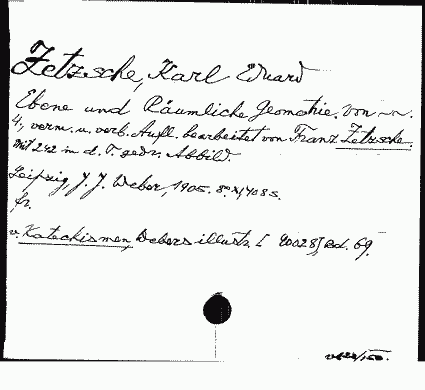 Zetzsche, Karl Eduard
Ebene und Räumliche Geometrie. Von ~.
4., verm. u. verb. Aufl. bearbeitet von Franz Zetzsche.
Mit 242 in d. T. gedr. Abbild.
Leipzig, J. J. Weber, 1905. 8° 408 s.
fr.
v. Katechismen, Webers illustr. [40028], Bd. 69.